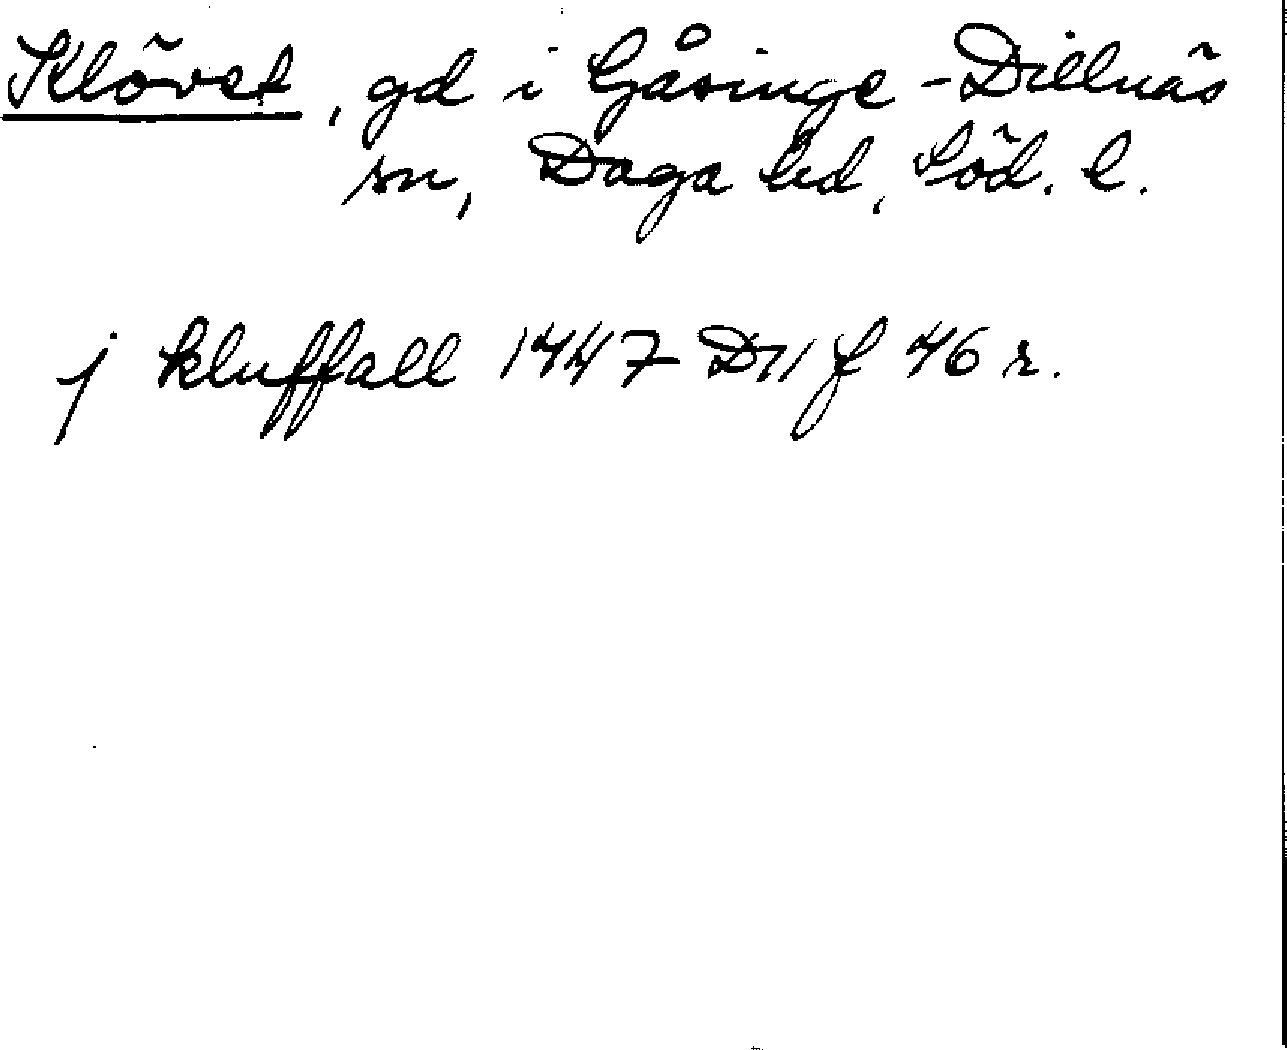 Klövet, gd i Gåsinge-Dillnäs
sn, Daga hd, Söd. l.
j kluffall 1447 D11 f 46 r.